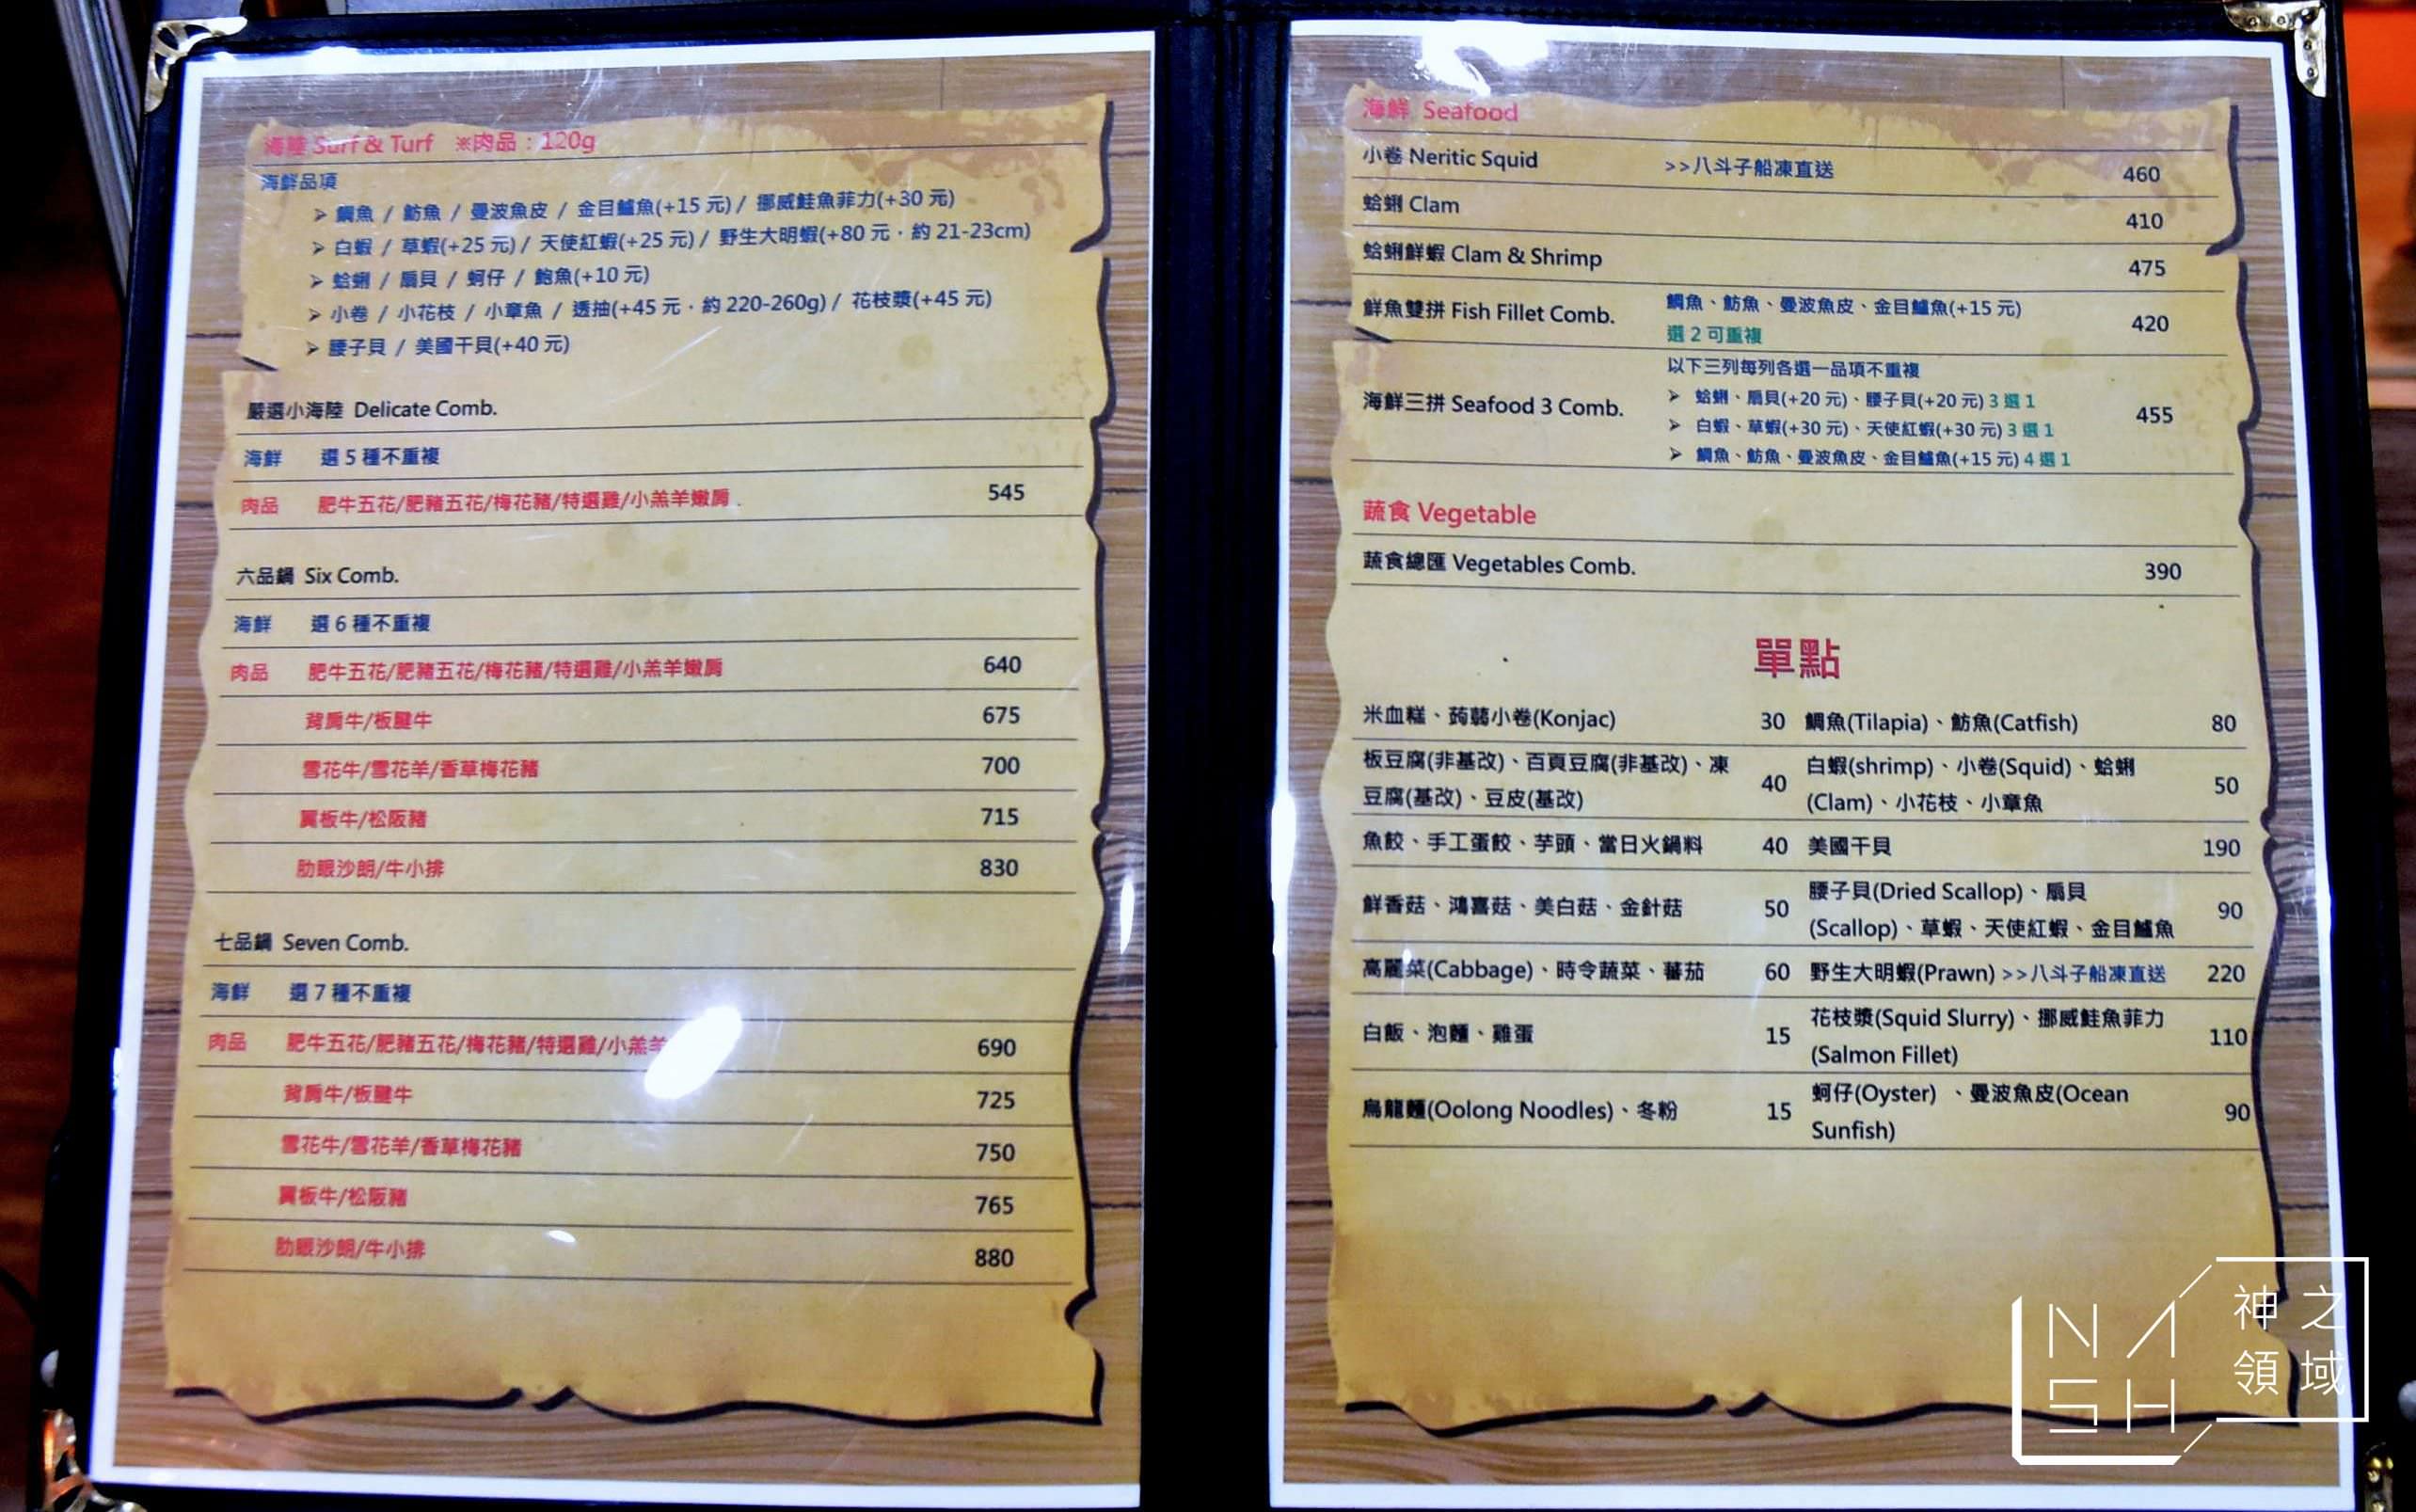 海陸 Surf & Turf ※肉品：120g
海鮮品項
➢ 鯛魚 / 魴魚 / 曼波魚皮 / 金目鱸魚(+15 元) / 挪威鮭魚菲力(+30 元)
➢ 白蝦 / 草蝦(+25 元) / 天使紅蝦(+25 元) / 野生大明蝦(+80 元．約 21-23cm)
➢ 蛤蜊 / 扇貝 / 蚵仔 / 鮑魚(+10 元)
➢ 小卷 / 小花枝 / 小章魚 / 透抽(+45 元．約 220-260g) / 花枝漿(+45 元)
➢ 腰子貝 / 美國干貝(+40 元)
嚴選小海陸 Delicate Comb.
海鮮 選 5 種不重複
肉品 肥牛五花/肥豬五花/梅花豬/特選雞/小羔羊嫩肩 545
六品鍋 Six Comb.
海鮮 選 6 種不重複
肉品 肥牛五花/肥豬五花/梅花豬/特選雞/小羔羊嫩肩 640
背肩牛/板腱牛 675
雪花牛/雪花羊/香草梅花豬 700
翼板牛/松阪豬 715
肋眼沙朗/牛小排 830
七品鍋 Seven Comb.
海鮮 選 7 種不重複
肉品 肥牛五花/肥豬五花/梅花豬/特選雞/小羔羊 690
背肩牛/板腱牛 725
雪花牛/雪花羊/香草梅花豬 750
翼板牛/松阪豬 765
肋眼沙朗/牛小排 880
海鮮 Seafood
小卷 Neritic Squid >>八斗子船凍直送 460
蛤蜊 Clam 410
蛤蜊鮮蝦 Clam & Shrimp 475
鮮魚雙拼 Fish Fillet Comb. 鯛魚、魴魚、曼波魚皮、金目鱸魚(+15 元) 420
選 2 可重複
以下三列每列各選一品項不重複
海鮮三拼 Seafood 3 Comb. 455
➢ 蛤蜊、扇貝(+20 元)、腰子貝(+20 元) 3 選 1
➢ 白蝦、草蝦(+30 元)、天使紅蝦(+30 元) 3 選 1
➢ 鯛魚、魴魚、曼波魚皮、金目鱸魚(+15 元) 4 選 1
蔬食 Vegetable
蔬食總匯 Vegetables Comb. 390
單點
米血糕、蒟蒻小卷(Konjac) 30 鯛魚(Tilapia)、魴魚(Catfish) 80
板豆腐(非基改)、百頁豆腐(非基改)、凍
豆腐(基改)、豆皮(基改) 40
白蝦(shrimp)、小卷(Squid)、蛤蜊
(Clam)、小花枝、小章魚 50
魚餃、手工蛋餃、芋頭、當日火鍋料 40 美國干貝 190
鮮香菇、鴻喜菇、美白菇、金針菇 50
腰子貝(Dried Scallop)、扇貝
(Scallop)、草蝦、天使紅蝦、金目鱸魚 90
高麗菜(Cabbage)、時令蔬菜、蕃茄 60 野生大明蝦(Prawn) >>八斗子船凍直送 220
白飯、泡麵、雞蛋 15
花枝漿(Squid Slurry)、挪威鮭魚菲力
(Salmon Fillet) 110
烏龍麵(Oolong Noodles)、冬粉 15
蚵仔(Oyster) 、曼波魚皮(Ocean
Sunfish) 90
NASH
神之
領域